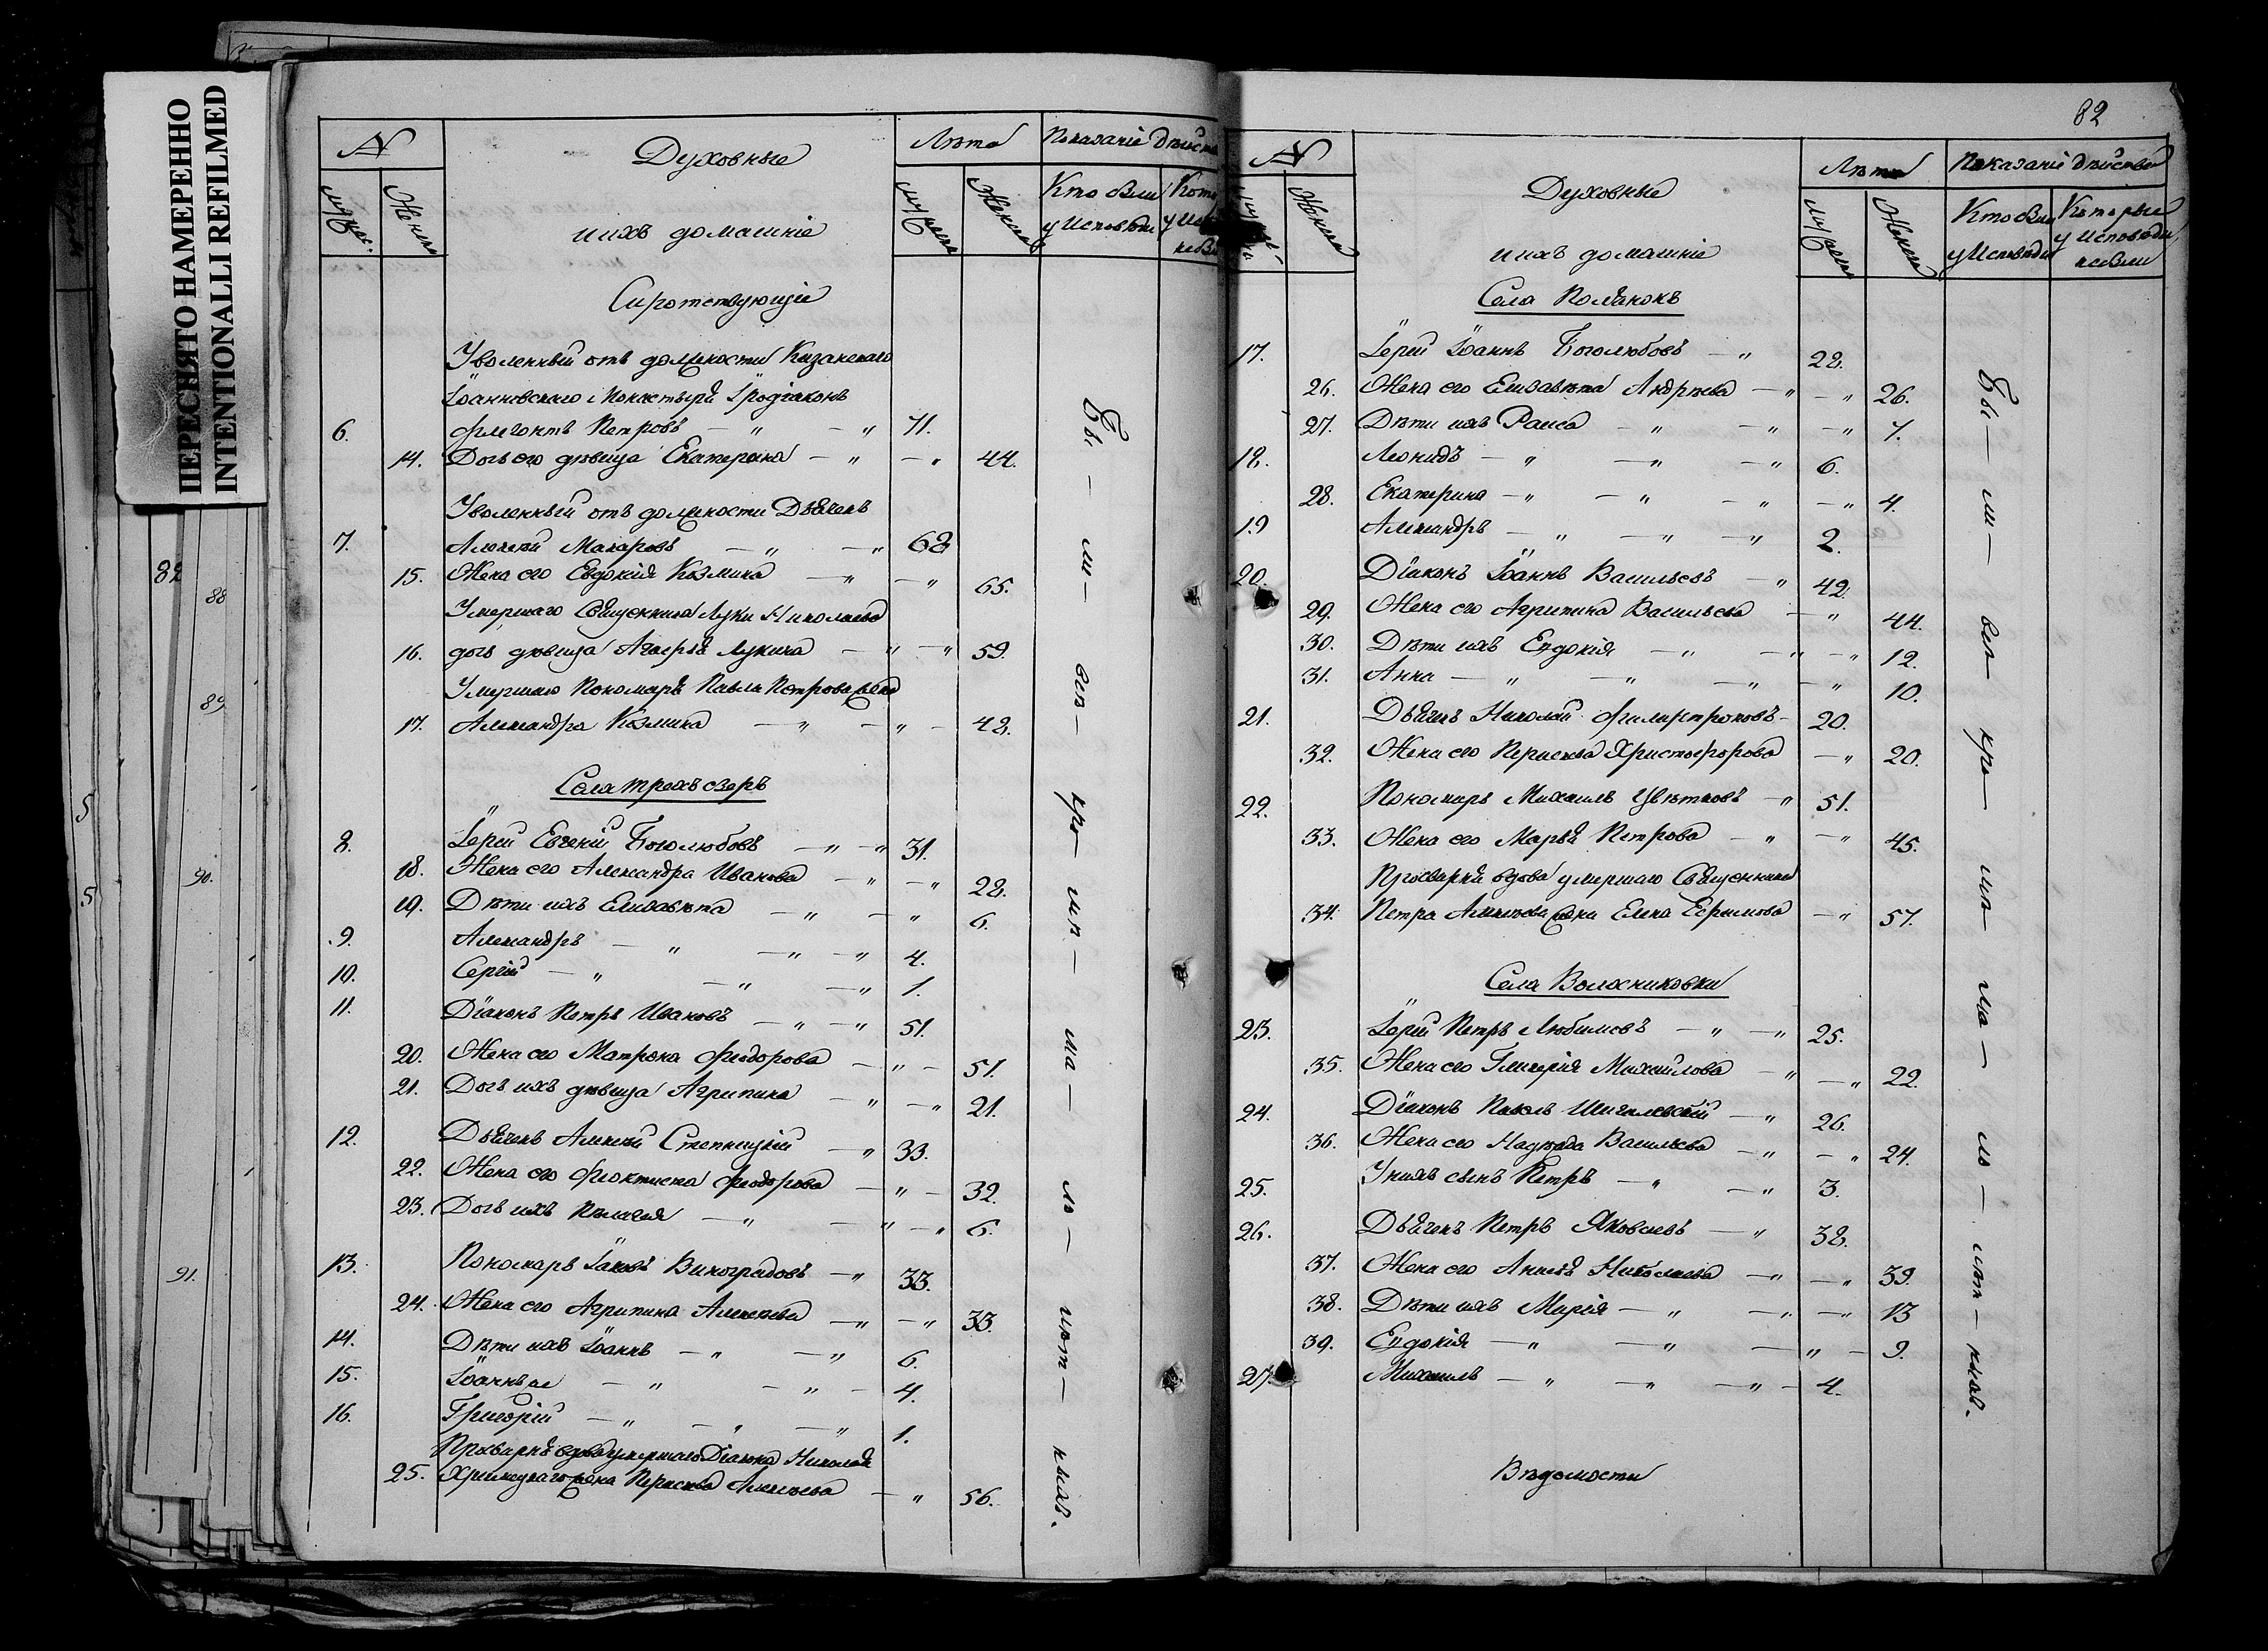 ПЕРЕСНЯТО НАМЕРЕННО
INTENTIONALLI REFILMED
82
88
89
90.
91.
5
5
№
Духовные
и ихъ домашніе
Лѣта
Показаніе дѣйств
Мужес.
Женска
Мужеска
Женска
Кто были у Исповѣди
Кото у Ис не бы
Сиротствующіе
Уволенный отъ должности Казанскаго
Іоанновскаго Монастыря Іродіаконъ
6. Флегонтъ Петровъ — " — " 71.
14. Дочь его дѣвица Екатерина — " — " 44.
Уволенный отъ должности Дьячекъ
7. Алексѣй Макаровъ — " — " 68
15. Жена его Евдокія Козмина — " — " 65.
Умершаго Священника Луки Николаева
16. дочь дѣвица Лукина — " — " 59.
Умершаго Пономаря Павла Петрова жена
17. Александра Козмина — " — " — 48.
Села Трехъ озеръ
8. Іерей Евгеній Боголюбовъ — " — " 31.
18. Жена его Александра Иванова — " — " 28.
19. Дѣти ихъ Елизавета — " — " 6.
9. Александръ — " — " — " 4.
10. Сергій — " — " — " 1.
11. Діаконъ Петръ Ивановъ — " — " 51.
20. Жена его Матрона Феодорова — " — 51.
21. Дочь ихъ дѣвица Агрипина — " — " 21.
12. Дьячекъ Алексѣй Степницкій — " 33.
22. Жена его Феоктиста Феодорова — " — 32.
23. Дочь ихъ Пелагея — " — " — " 6.
13. Пономарь Іаковъ Виноградовъ — " 33.
24. Жена его Агрипина Алексѣева — " — " 33.
14. Дѣти ихъ Іоаннъ — " — " 6.
15. Іоаннъ же — " — " — 4.
16. Григорій — " — " — " 1.
Просвирня вдова умершаго Діакона Николая
25. жена Параскева Алексѣева — " 56.
Бы — ли — всѣ — кро — мѣ — ма — лО — лѣт — ныхъ.
82
№
Духовные
и ихъ домашніе
Лѣта
Показаніе дѣйствъ
Женска
Мужеска
Женска
Кто были у Исповѣди
Которые у Исповѣди не были
Села Полянокъ
17. Іерей Іоаннъ Боголюбовъ — " 28.
26. Жена его Елизавѣта Андрѣева — " — " 26.
27. Дѣти ихъ Раиса — " — " — " 7.
18. Леонидъ — " — " — " 6.
28. Екатерина — " — " — " — " 4.
19 Александръ — " — " — " 2.
20. Діаконъ Іоаннъ Васильевъ — " 42.
29. Жена его Агрипина Васильева — " 44.
30. Дѣти ихъ Евдокія — " — " — " 12.
31. Анна — " — " — " — " 10.
21. Дьячекъ Николай — 20.
32. Жена его Параскева Христофорова — " 20.
22. Пономарь Михаилъ Цвѣтковъ — " 51.
33. Жена его Марья Петрова — " — " 45.
Просвирня вдова умершаго Священника
34. Петра Алексѣева жена Елена Ефимова — " 57.
Села Волосниковки
23. Іерей Петръ Любимовъ — " — " 25.
35. Жена его Гликерія Михайлова — " — " 22.
24. Діаконъ Павелъ — " 26.
36. Жена его Надежда Васильева — " — " 24.
25. У нихъ сынъ Петръ — " — " 3.
26. Дьячекъ Петръ Яковлевъ — " 38.
37. Жена его Николаева — " — " 39.
38. Дѣти ихъ Марія — " — " — " 13
39. Евдокія — " — " — " — 9.
27. Михаилъ — " — " — " — 4.
Бы — ли — всѣ — кро — мѣ — ма — ло — лѣт — ныхъ.
Вѣдомости